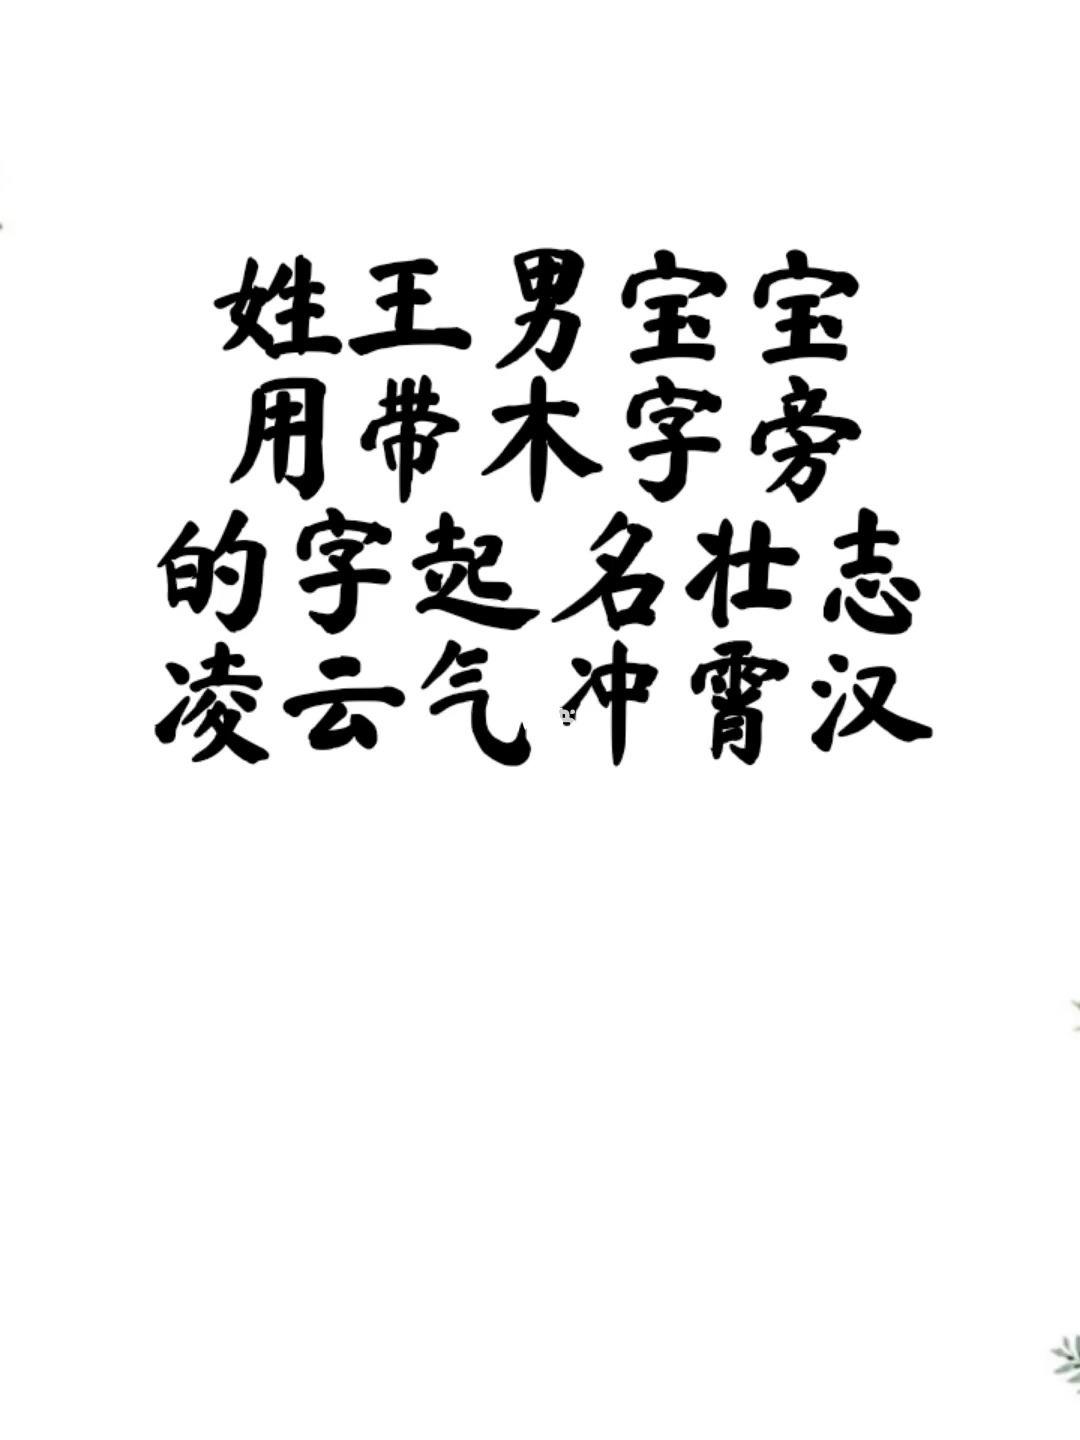 姓王男宝宝
用带木字旁
的字起名壮志
凌云气冲霄汉